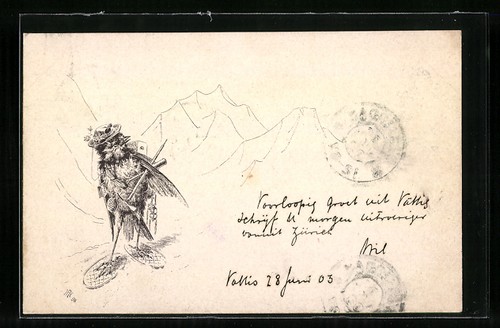 Voorloopig Groet uit Vättis
Schrijf U morgen uitvoeriger
vanuit Zürich
Wil
Vättis 28 Juni 03